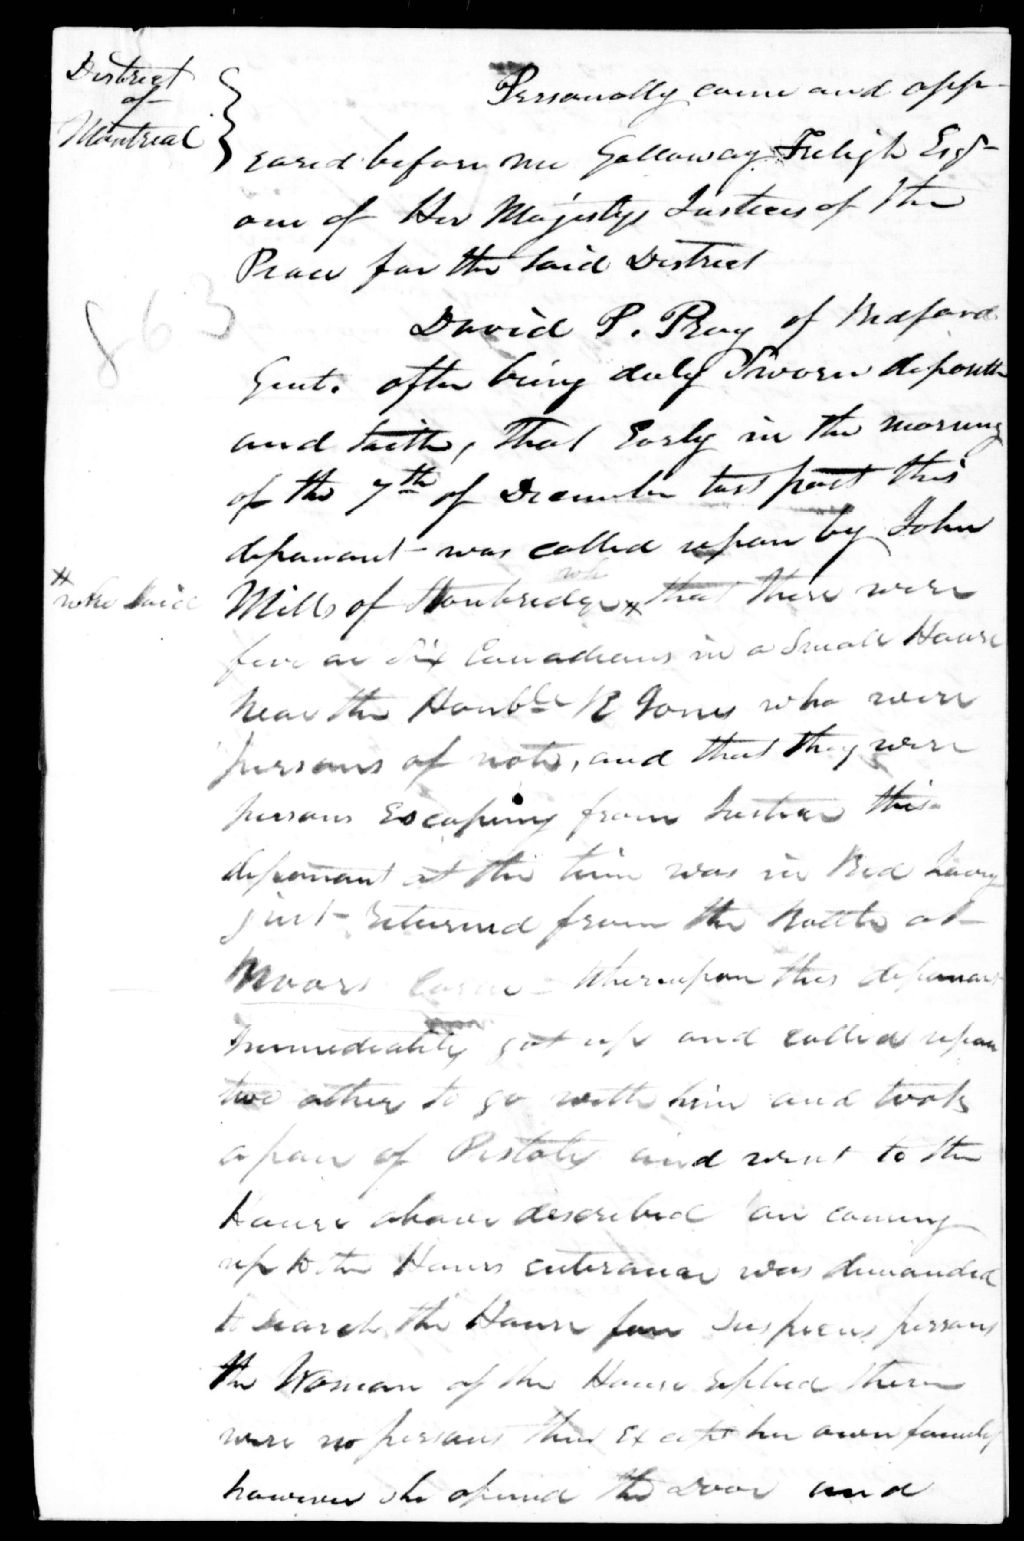 District
of
Montreal
Personally came and app-
eared before me Galloway Freligh Esqr
one of Her Majestys Justices of the
Peace for the Said District
863
David P. Pray of Bedford
Gent. after being duly Sworn deposeth
and Saith, That Early in the morning
of the 7th of December last past this
deponant was called upon by John
x who Said
Mills of Stanbridge x that there were
five or Six Canadians in a Small House
Near the Honble R Jones who were
persons of note, and that they were
persons Escaping from Justice this
deponant at this time was in Bed having
just returned from the Battle at
Moors Corner - Whereupon this deponant
Immediately got up and called upon
two others to go with him and took
a pair of Pistols and went to the
House above described on coming
up to the House enterance was demanded
to Search the House for Suspicious persons
the Woman of the House replied there
were no persons there Except her own family
however she opened the door and